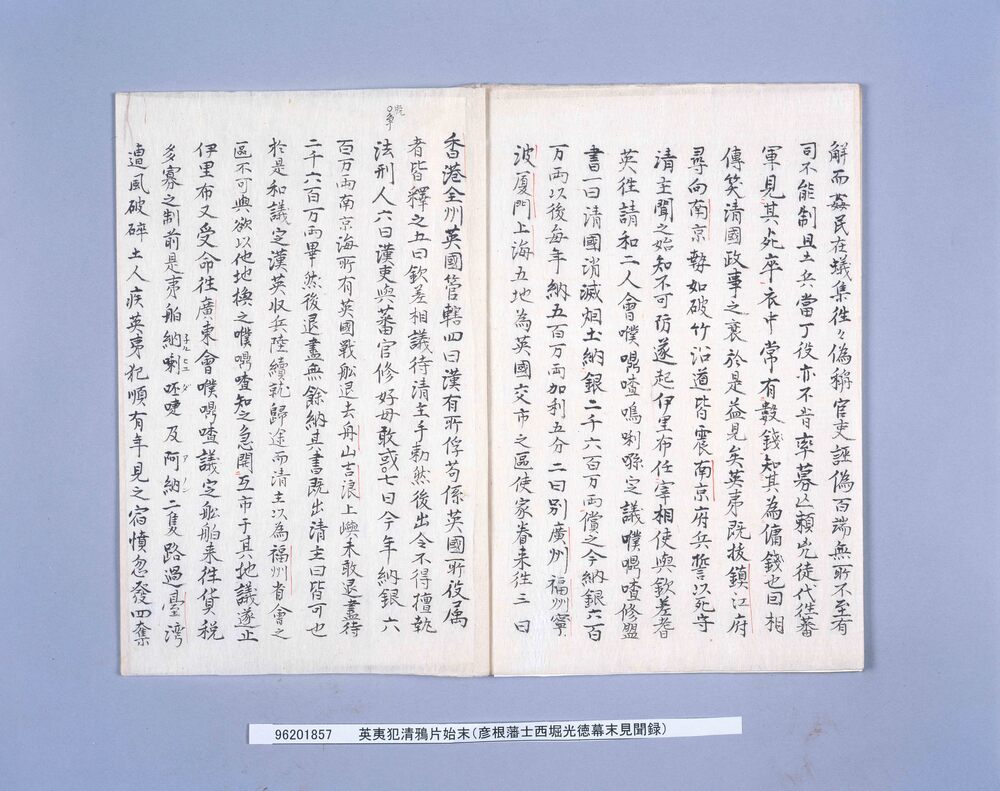 解而姦民在蟻集往々偽称官吏誣偽百端無所不至有
司不能制且土兵當丁役亦不肯率募亡頼兇徒代往蕃
軍見其死卒衣中常有数錢知其為傭錢也因相
傳笑清國政事之衰於是益見矣英夷既抜鎮江府
尋向南京勢如破竹沿道皆震南京府兵誓以死守
清主聞之始知不可防遂起伊里布任宰相使與欽差耆
英往請和二人會噗𠸄喳嗚喇㗭定議噗𠸄喳修盟
書一曰清國消滅烟土納銀二千六百万両償之今納銀六百
万両以後毎年納五百万両加利五分二曰別廣州福州寧
波厦門上海五地為英國交市之區使家眷来往三曰
香港全州英國管轄四曰漢有所俘苟係英國所役属
者皆釋之五曰欽差相議待清主手勅然後出令不得擅執
法刑人六曰漢吏與蕃官修好毋敢或七曰今年納銀六
百万両南京海所有英國戰舩退去舟山吉浪上嶼未敢退盡待
二千六百万両畢然後退盡無餘納其書既出清主曰皆可也
於是和議定漢英収兵陸續就歸途而清主以為福州省會之
區不可與欲以他地換之噗𠸄喳知之急開互市于其地議遂止
伊里布又受命往廣東會噗𠸄喳議定舩舶来往貨税
多寡之制前是夷舶納喇呸㖫及阿納二隻路過臺湾
遭風破碎土人疾英夷犯順有年見之宿憤忽發四奪